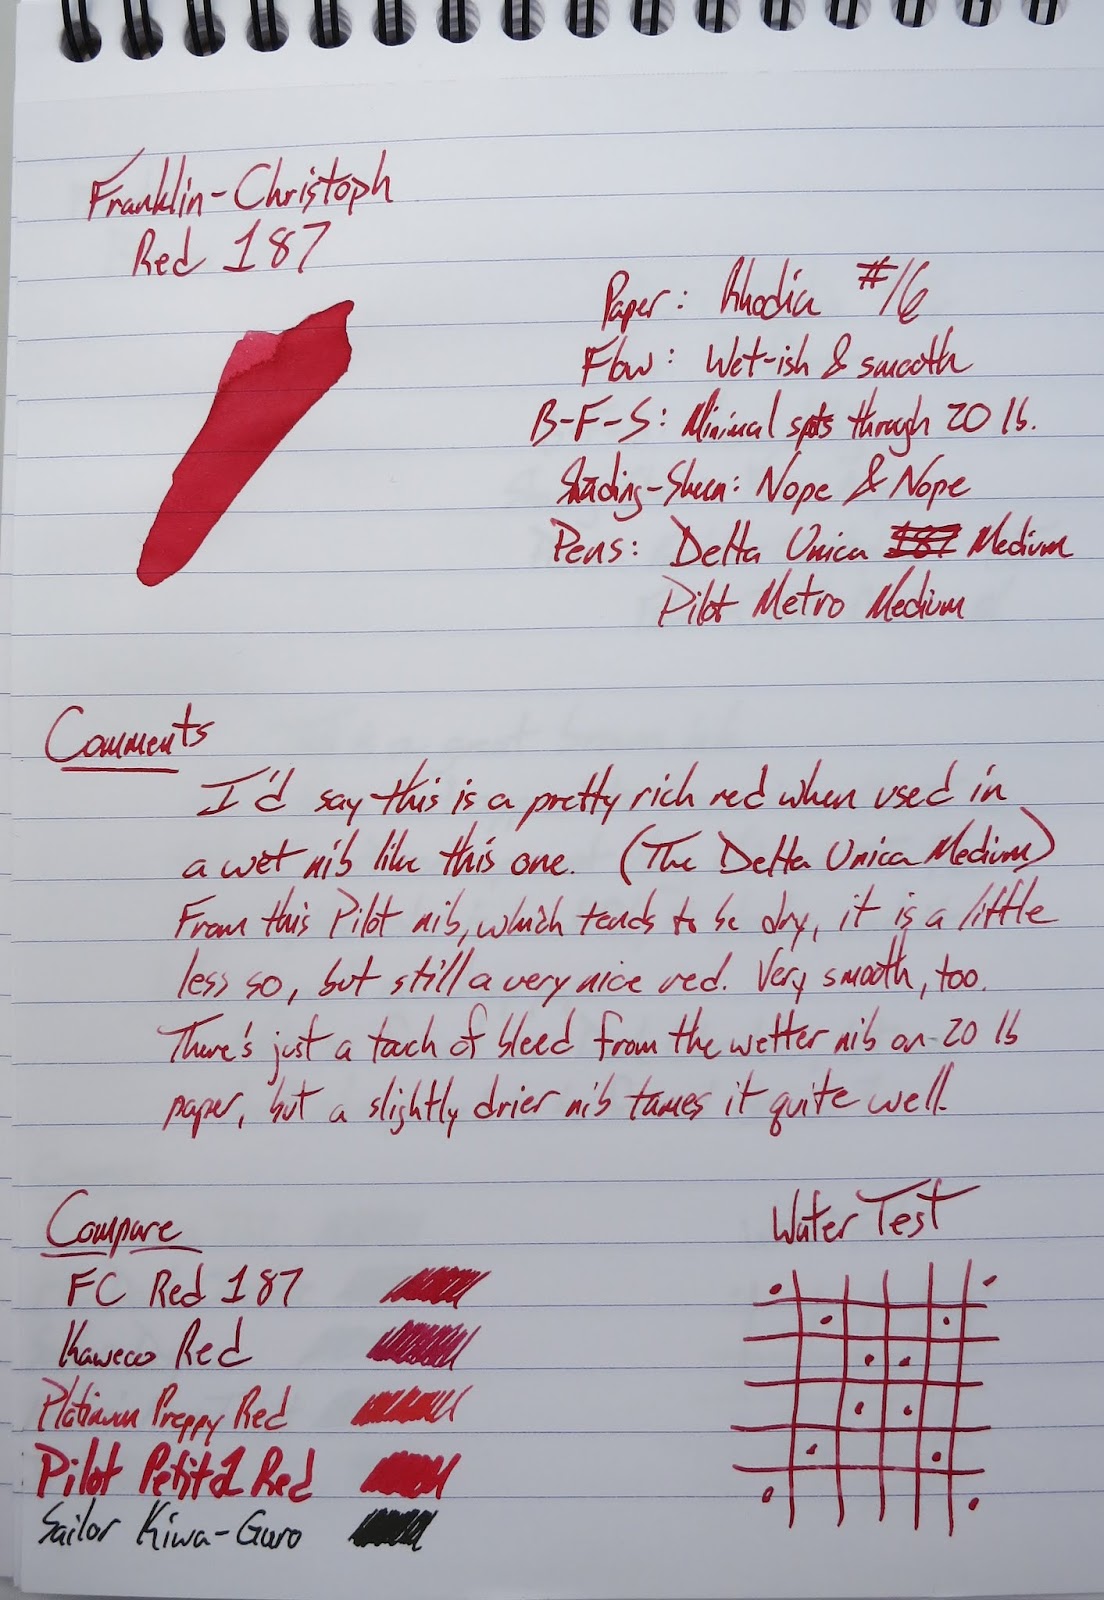 Franklin-Christoph
Red 187
Paper: Rhodia #16
Flow: Wet-ish & smooth
B-F-S: Minimal spots through 20 lb.
Shading-Sheen: Nope & Nope
Pens: Delta Unica Medium
Pilot Metro Medium
Comments
I'd say this is a pretty rich red when used in
a wet nib like this one. (The Delta Unica Medium)
From this Pilot nib, which tends to be dry, it is a little
less so, but still a very nice red. Very smooth, too.
There's just a touch of bleed from the wetter nib on 20 lb
paper, but a slightly drier nib tames it quite well.
Compare
FC Red 187
Kaweco Red
Platinum Preppy Red
Pilot Petit1 Red
Sailor Kiwa-Guro
Water Test